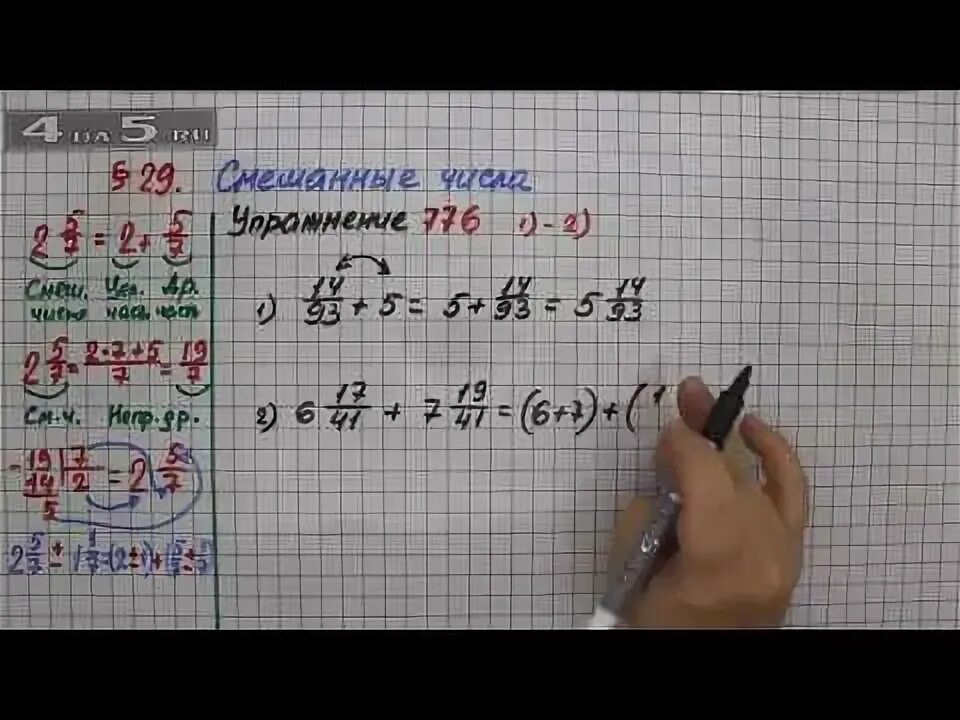 4 на 5.ru
§ 29. Смешанные числа
Упражнение 776 1)-2)
2 5/7 = 2 + 5/7
Смеш. Цел. Др.
число част. часть
2 5/7 = 2·7+5/7 = 19/7
См.ч. Непр.др.
- 19 | 7
14 | 2 = 2 5/7
5
2 5/7 ± 1 1/7 = (2±1)+(5/7±1/7)
1) 14/93 + 5 = 5 + 14/93 = 5 14/93
2) 6 17/41 + 7 19/41 = (6+7)+(1